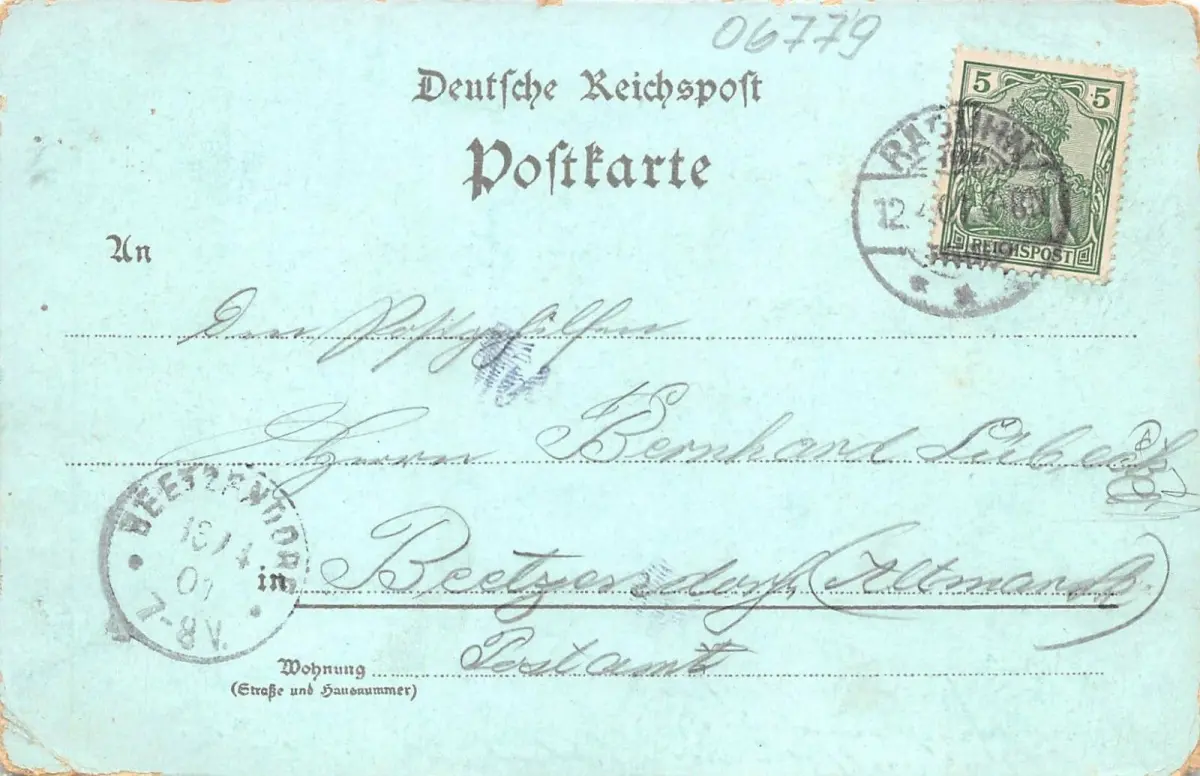 06779
Deutsche Reichspost
Postkarte
5 5
REICHSPOST
RAGUHN
12.4.01
An
Den Postgehilfen
Herrn Bernhard Lübeck
BEETZENDORF
13/4
01
in Beetzendorf (Altmark)
Postamt
Wohnung
(Straße und Hausnummer)